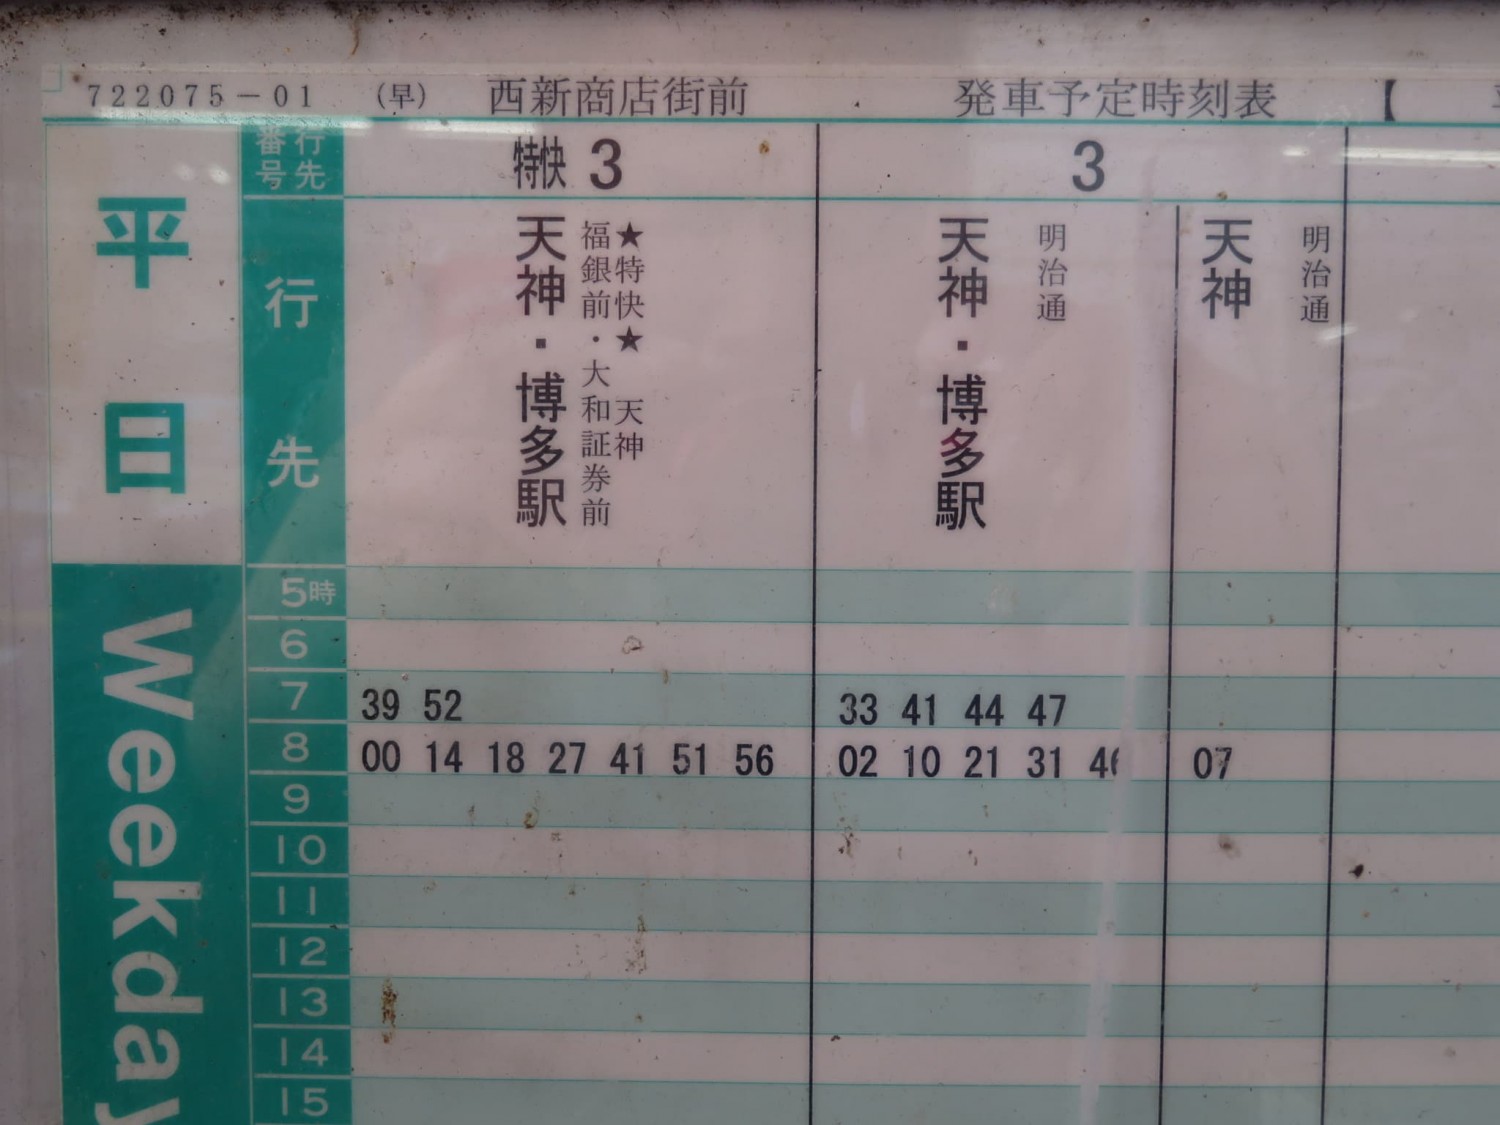 722075-01 (早) 西新商店街前 発車予定時刻表 【
平日
Weekday
行先番号
特快 3
3
行先
天神・博多駅
★特快★ 天神
福銀前・大和証券前
天神・博多駅
明治通
天神
明治通
5時
6
7 39 52 33 41 44 47
8 00 14 18 27 41 51 56 02 10 21 31 46 07
9
10
11
12
13
14
15